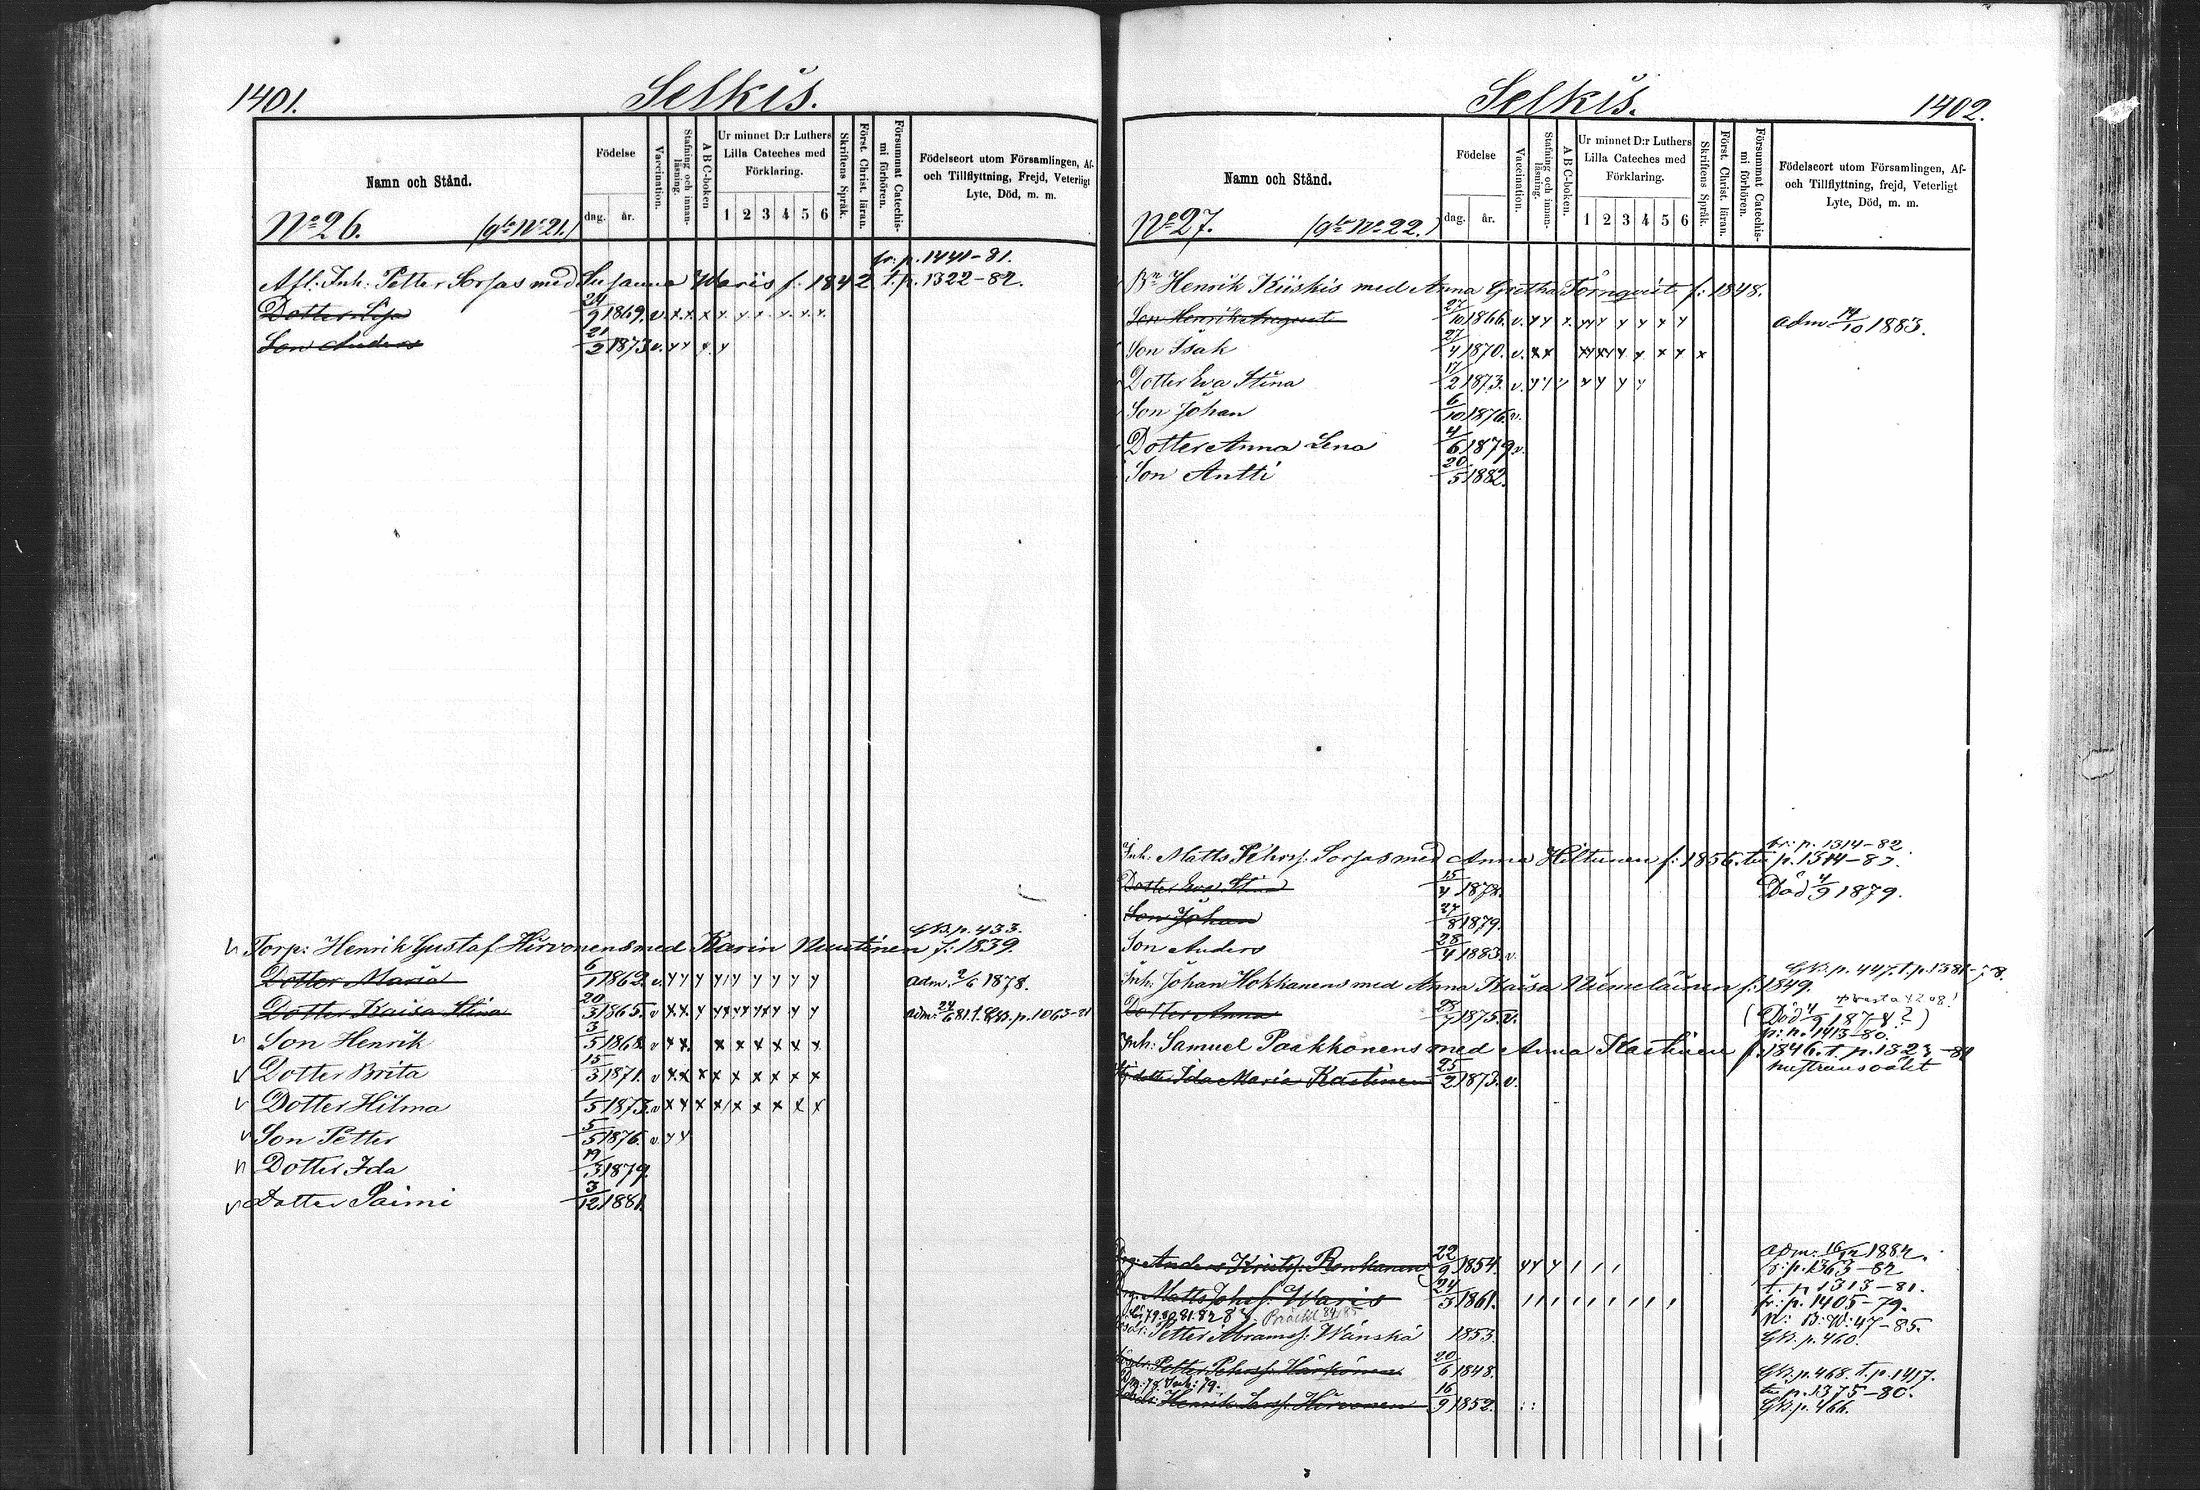 1401. Selkis.
Namn och Stånd.
Födelse
dag. år.
Vaccination.
Stafning och innanläsning.
A B C-boken
Ur minnet D:r Luthers Lilla Cateches med Förklaring.
1 2 3 4 5 6
Skriftens Språk.
Först. Christ. läran.
Försummat Catechismi förhören.
Födelseort utom Församlingen, Af- och Tillflyttning, Frejd, Veterligt Lyte, Död, m. m.
No 26. (gl: No 21.)
fr: p. 1441-81.
Afl. Inh: Petter Sorsas med Susanna Waris f: 1842 t. p. 1322-82.
Dotter Lisa 24/9 1869. v. x x x x y x x x x
Son Anders 21/2 1873 v. y y x y
GB. p. 433.
Torp: Henrik Gustaf Hirvonens med Karin Nuutinen f: 1839.
Dotter Maria 6/1 1862. v. y y y y y y y y y adm. 2/6 1878.
Dotter Kaisa Stina 20/3 1865. v adm. 24/6 81. t. GB. p. 1063-81
Son Henrik 3/5 1868 v x x x x x x x x
Dotter Brita 15/3 1871. v x x x x x x x x x
Dotter Hilma 1/5 1873. v x x x x x x x x x
Son Petter 5/5 1876. v. y y
Dotter Ida 19/3 1879.
Dotter Saimi 3/12 1881.
Selkis. 1402.
Namn och Stånd.
Födelse
dag. år.
Vaccination.
Stafning och innanläsning.
A B C-boken.
Ur minnet D:r Luthers Lilla Cateches med Förklaring.
1 2 3 4 5 6
Skriftens Språk.
Först. Christ. läran.
Försummat Catechismi förhören.
Födelseort utom Församlingen, Af- och Tillflyttning, frejd, Veterligt Lyte, Död, m. m.
No 27. (gl: No 22.)
Bn Henrik Kiiskis med Anna Gretha Törnqvist f: 1848.
Son Henrik August 27/10 1866. v. y y x y y y y y y adm 14/10 1883.
Son Isak 27/4 1870. v. x x
Dotter Eva Stina 17/2 1873. v. y y y y y y y
Son Johan 6/10 1876. v.
Dotter Anna Lena 4/6 1879 v.
Son Antti 20/5 1882.
fr: p. 1314-82.
Inh: Matts Pehrs: Sorsas med Anna Hiltunen f: 1856. t: p. 1314-87.
Dotter Eva Stina 15/4 1878. Död 4/9 1879.
Son Johan 27/8 1879.
Son Anders 28/4 1883. v.
GB. p. 447. t. p. 1381-78.
Inh: Johan Hokkanens med Anna Kaisa Niemeläinen f: 1849.
Dotter Anna 28/7 1875. v. (Död 4/9 1878?)
fr: p. 1413-80.
Inh: Samuel Paakkonens med Anna Kastinen f: 1846. t. p. 1323-81
dotter Ida Maria Kastinen 25/2 1873. v.
Drg: Anders Kristers: Ronkanen 22/9 1854. y y y adm: 16/12 1882.
fr: p. 1363-82
t. p. 1313-81.
Drg: Matts Johs: Waris 24/3 1861. fr: p. 1405-79.
79. 80. 81. 82. 83. 84. 85 N: B: W: 47-85.
Petter Abramss: Wänskä 1853. GB. p. 460.
Petter Pehrss: Härkönen 20/6 1848. GB. p. 468. t. p. 1417.
Inh: 79. t: p. 1375-80.
Henrik Larss: Hirvonen 16/9 1852. GB. p. 466.